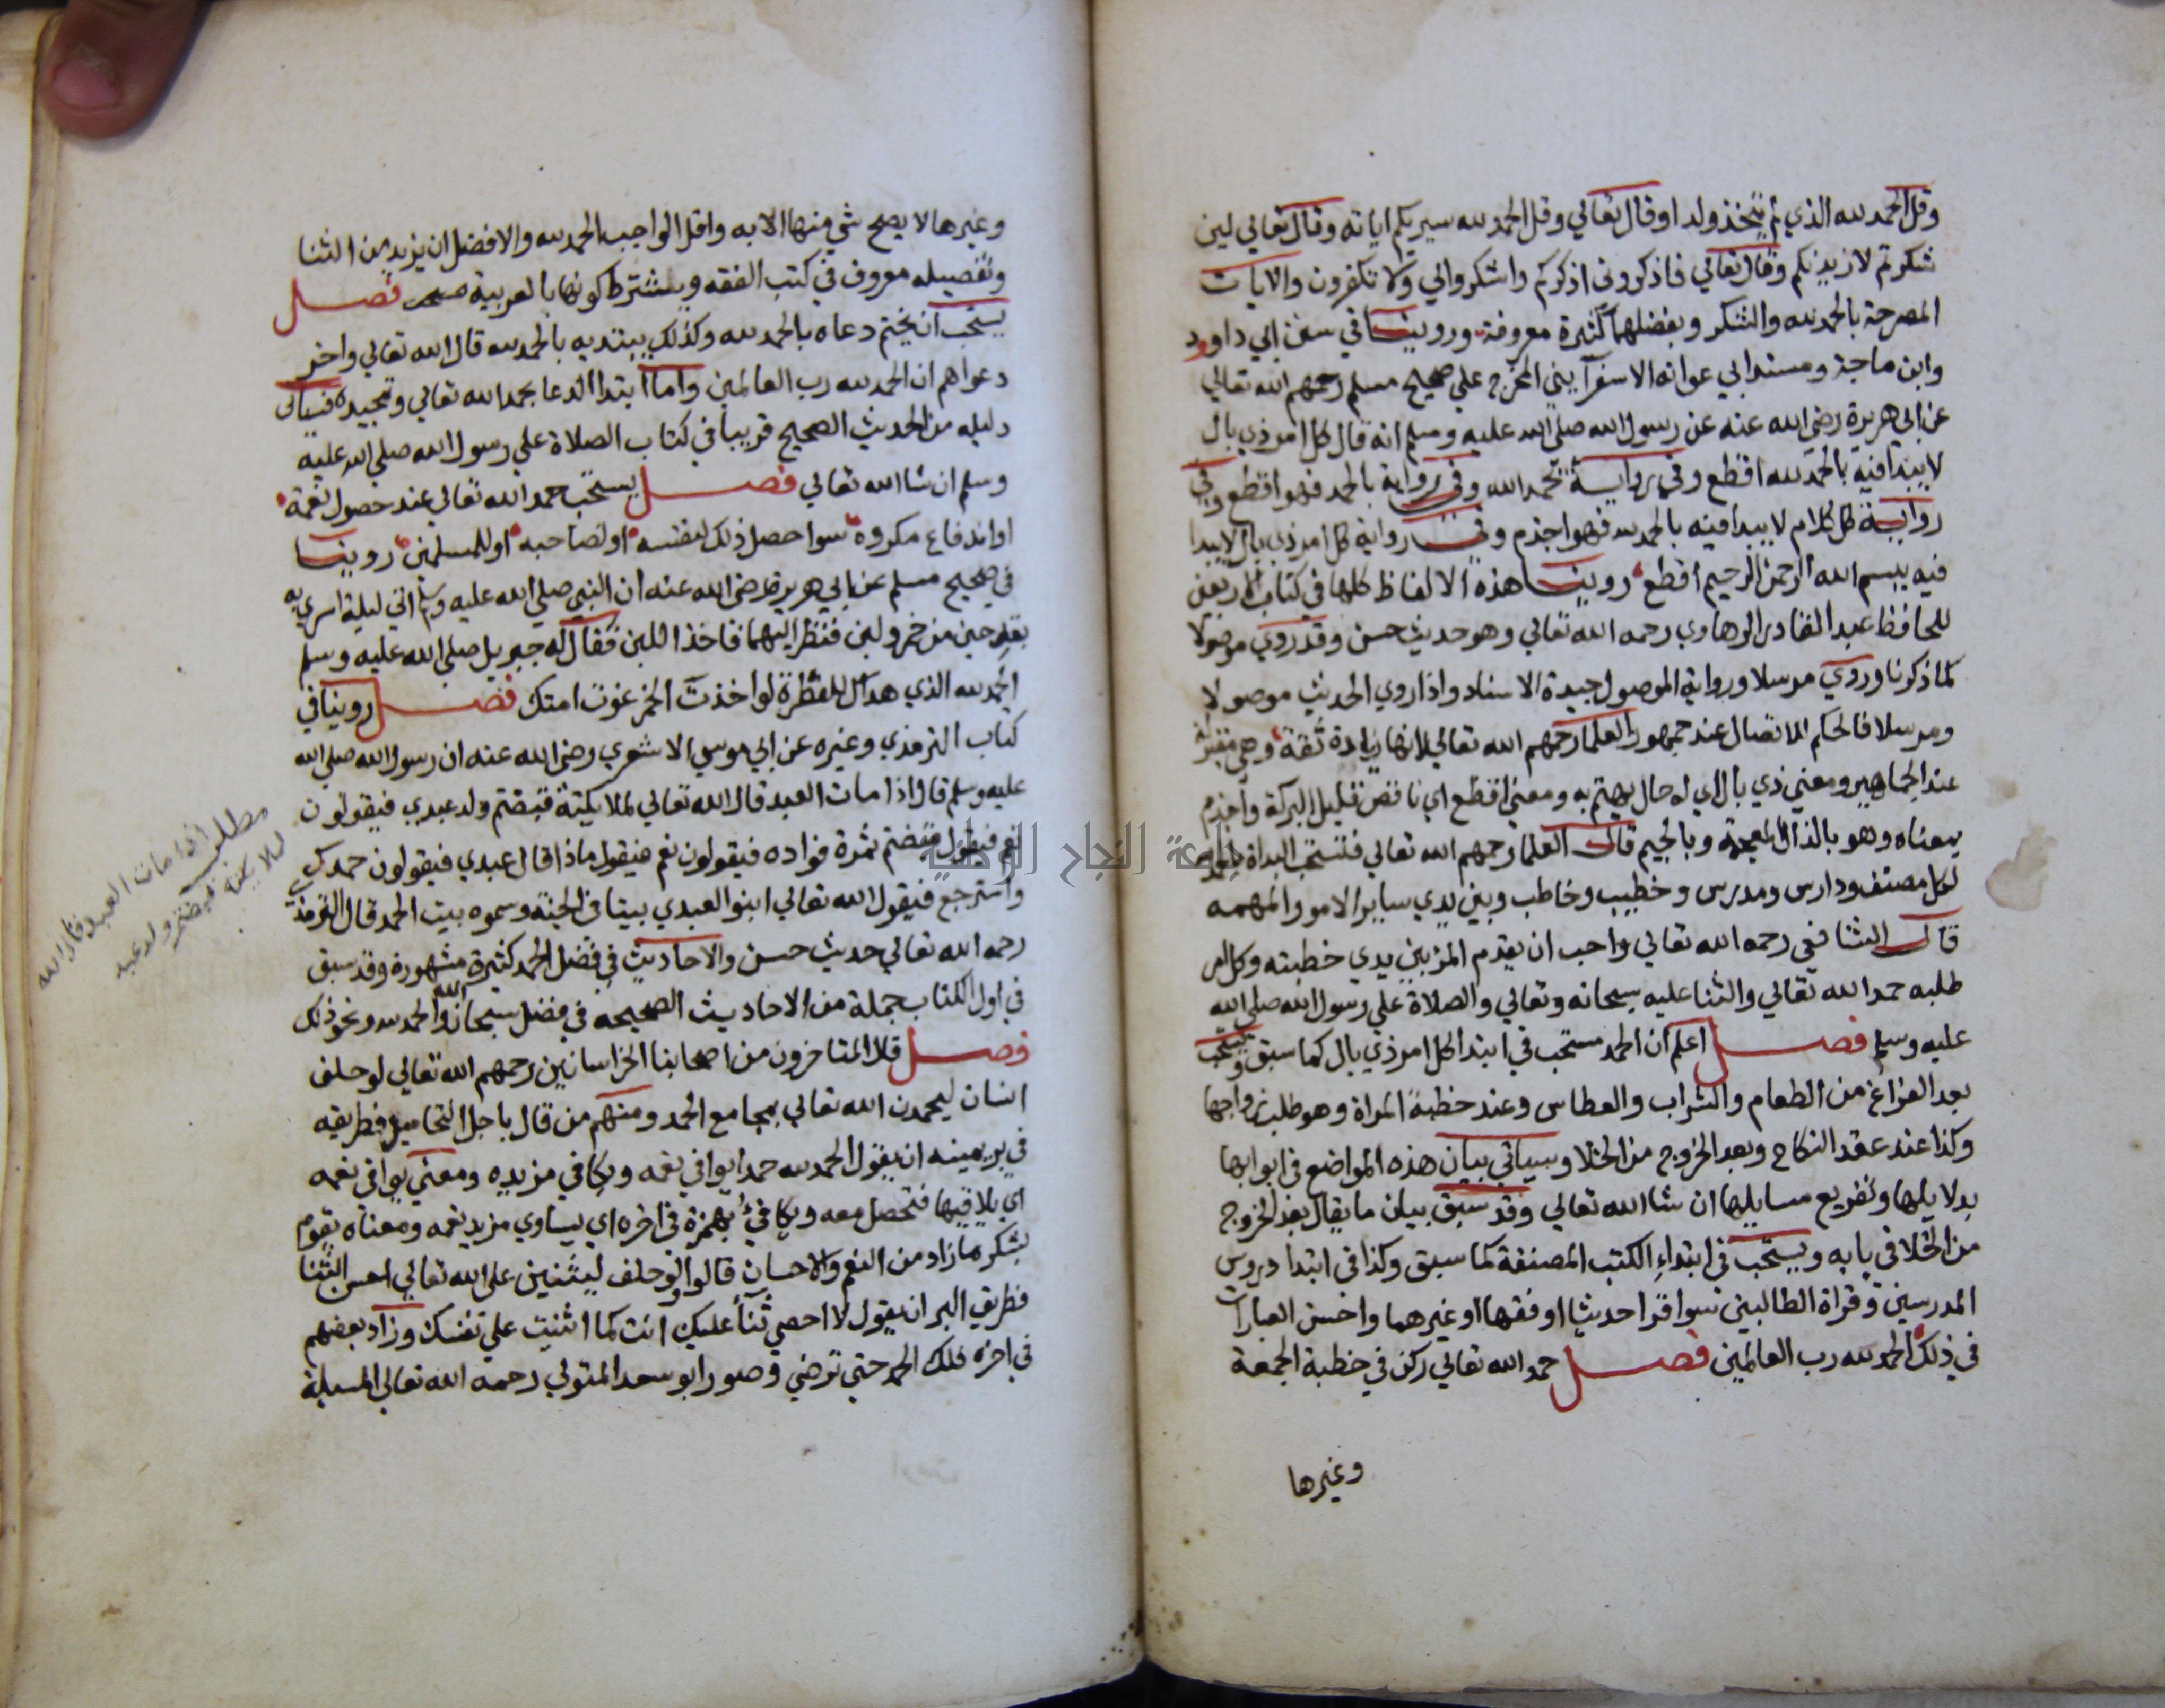 وقل الحمد لله الذي لم يتخذ ولدا وقال تعالي وقل الحمد لله سيريكم اياته وقال تعالي لين
شكرتم لازيدنكم وقال تعالي فاذكروني اذكركم واشكروا لي ولا تكفرون والايات
المصرحة بالحمد لله والشكر وبفضلهما كثيرة معروفة وروينا في سنن ابي داود
وابن ماجة ومسند ابي عوانه الاسفرآييني المخرج علي صحيح مسلم رحمهم الله تعالي
عن ابي هريرة رضي الله عنه عن رسول الله صلي الله عليه وسلم انه قال كل امر ذي بال
لا يبدا فيه بالحمد لله اقطع وفي رواية بحمد الله وفي رواية بالحمد فهو اقطع وفي
رواية كل كلام لا يبدا فيه بالحمد لله فهو اجذم وفي رواية كل امر ذي بال لا يبدا
فيه ببسم الله الرحمن الرحيم اقطع روينا هذه الالفاظ كلها في كتاب الاربعين
للحافظ عبد القادر الرهاوي رحمه الله تعالي وهو حديث حسن وقد روي موصولا
كما ذكرنا وروي مرسلا ورواية الموصول جيدة الاسناد واذا روي الحديث موصولا
ومرسلا فالحكم للاتصال عند جمهور العلما رحمهم الله تعالي لانها زيادة ثقة وهي مقبولة
عند الجماهير ومعني ذي بال اي له حال يهتم به ومعني اقطع اي ناقص قليل البركة واجذم
بمعناه وهو بالذال المعجمة وبالجيم قال العلما رحمهم الله تعالي فتستحب البداة بالحمد
لكل مصنف ودارس ومدرس وخطيب وخاطب وبين يدي ساير الامور المهمه
قال الشافعي رحمه الله تعالي واحب ان يقدم المرء بين يدي خطبته وكل امر
طلبه حمد الله تعالي والثنا عليه سبحانه وتعالي والصلاة علي رسول الله صلي الله
عليه وسلم فصل اعلم ان الحمد مستحب في ابتدا كل امر ذي بال كما سبق ويستحب
بعد الفراغ من الطعام والشراب والعطاس وعند خطبة المراة وهو طلب زواجها
وكذا عند عقد النكاح وبعد الخروج من الخلا وسياتي بيان هذه المواضع في ابوابها
بدلايلها وتفريع مسايلها ان شا الله تعالي وقد سبق بيان ما يقال بعد الخروج
من الخلا في بابه ويستحب في ابتداء الكتب المصنفة كما سبق وكذا في ابتدا دروس
المدرسين وقراة الطالبين سوا قرا حديثا او فقها او غيرهما واحسن العبارات
في ذلك الحمد لله رب العالمين فصل حمد الله تعالي ركن في خطبة الجمعة
وغيرها
وغيرها لا يصح شي منها الا به واقل الواجب الحمد لله والافضل ان يزيد من الثنا
وتفصيله معروف في كتب الفقه ويشترط كونها بالعربية فصل
يستحب ان يختم دعاه بالحمد لله وكذلك يبتديه بالحمد لله قال الله تعالي واخر
دعواهم ان الحمد لله رب العالمين واما ابتدا الدعا بحمد الله تعالي وتمجيده فسياتي
دليله من الحديث الصحيح قريبا في كتاب الصلاة علي رسول الله صلي الله عليه
وسلم ان شا الله تعالي فصل يستحب حمد الله تعالي عند حصول نعمة
او اندفاع مكروه سوا حصل ذلك لنفسه او لصاحبه او للمسلمين روينا
في صحيح مسلم عن ابي هريرة رضي الله عنه ان النبي صلي الله عليه وسلم اتي ليلة اسري به
بقدحين من خمر ولبن فنظر اليهما فاخذ اللبن فقال له جبريل صلي الله عليه وسلم
الحمد لله الذي هداك للفطرة لو اخذت الخمر غوت امتك فصل روينا في
كتاب الترمذي وغيره عن ابي موسي الاشعري رضي الله عنه ان رسول الله صلي الله
عليه وسلم قال اذا مات العبد قال الله تعالي لملايكته قبضتم ولد عبدي فيقولون
نعم فيقول قبضتم ثمرة فواده فيقولون نعم فيقول ماذا قال عبدي فيقولون حمدك
واسترجع فيقول الله تعالي ابنوا لعبدي بيتا في الجنة وسموه بيت الحمد قال الترمذي
رحمه الله تعالي حديث حسن والاحاديث في فضل الحمد كثيرة مشهورة وقد سبق
في اول الكتاب جملة من الاحاديث الصحيحه في فضل سبحان الله والحمد لله ونحو ذلك
فصل قال المتاخرون من اصحابنا الخراسانيين رحمهم الله تعالي لو حلف
انسان ليحمدن الله تعالي بمجامع الحمد ومنهم من قال باجل التحاميد فطريقه
في بر يمينه ان يقول الحمد لله حمدا يوافي نعمه ويكافي مزيده ومعني يوافي نعمه
اي يلاقيها فتحصل معه ويكافئ بهمزة في اخره اي يساوي مزيد نعمه ومعناه يقوم
بشكر ما زاد من النعم والاحسان قالوا ولو حلف ليثنين علي الله تعالي احسن الثنا
فطريق البر ان يقول لا احصي ثنأ عليك انت كما اثنيت علي نفسك وزاد بعضهم
في اخره فلك الحمد حتي ترضي وصور ابو سعد المتولي رحمه الله تعالي المسيلة
مطلب اذا مات العبد قال الله
لملايكته قبضتم ولد عبدي
جامعة النجاح الوطنية